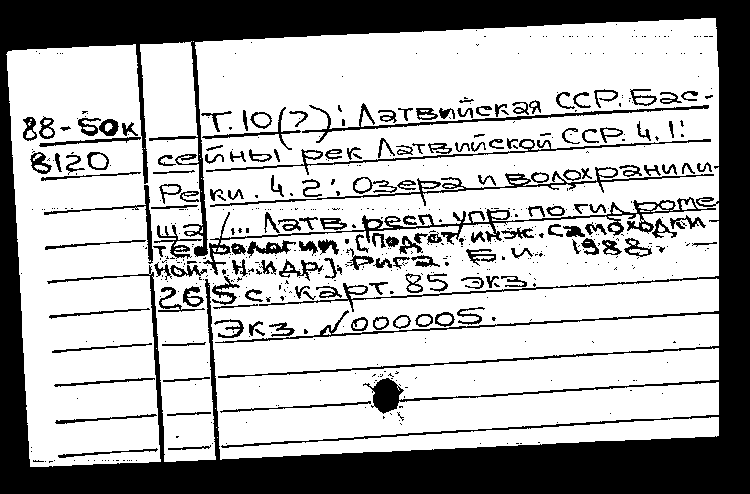 88-50к Т.10(7): Латвийская ССР. Бас-
8120 сейны рек Латвийской ССР. Ч.1:
Реки. Ч.2: Озера и водохранили-
ща /... Латв. респ. упр. по гидроме
теорологии. [Подгот. инж. Самоходки-
ной Т.Н. и др.]. Рига. Б.и. 1988.
265 с., карт. 85 экз.
Экз. №000005.